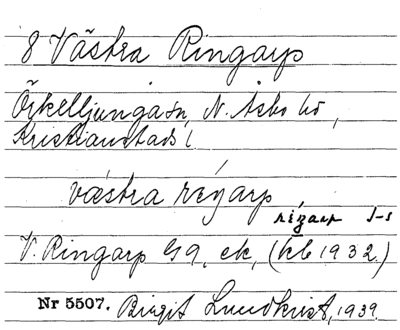 8 Västra Ringarp
Örkelljunga sn, N. Åsbo hd,
Kristianstads l
væstra réŋarp
réŋarp J-s
V. Ringarp G 9, ek, (kb 1932)
Nr 5507. Birgit Lundkvist, 1939